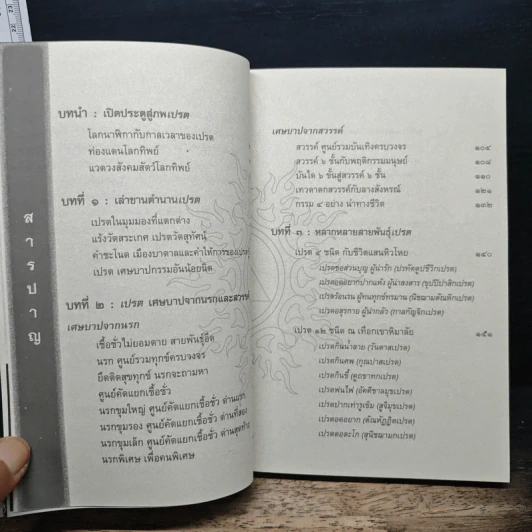 สารบาญ
บทนำ : เปิดประตูสู่ภพเปรต
โลกนาฬิกากับกาลเวลาของเปรต
ท่องแดนโลกทิพย์
แวดวงสังคมสัตว์โลกทิพย์
บทที่ ๑ : เล่าขานตำนานเปรต
เปรตในมุมมองที่แตกต่าง
แร้งวัดสระเกศ เปรตวัดสุทัศน์
คำชะโนด เมืองบาดาลและคำให้การของเปรต
เปรต เศษบาปกรรมอันน้อยนิด
บทที่ ๒ : เปรต เศษบาปจากนรกและสวรรค์
เศษบาปจากนรก
เชื้อชั่วไม่ยอมตาย สายพันธุ์อึด
นรก ศูนย์รวมทุกข์ครบวงจร
ยึดติดสุขทุกข์ นรกจะถามหา
ศูนย์คัดแยกเชื้อชั่ว
นรกขุมใหญ่ ศูนย์คัดแยกเชื้อชั่ว ด่านแรก
นรกขุมรอง ศูนย์คัดแยกเชื้อชั่ว ด่านที่สอง
นรกขุมเล็ก ศูนย์คัดแยกเชื้อชั่ว ด่านสุดท้าย
นรกพิเศษ เพื่อคนพิเศษ
เศษบาปจากสวรรค์
สวรรค์ ศูนย์รวมบันเทิงครบวงจร ๑๐๔
สวรรค์ ๖ ชั้นกับพฤติกรรมมนุษย์ ๑๐๘
บันได ๖ ขั้นสู่สวรรค์ ๖ ชั้น ๑๑๐
เทวดาตกสวรรค์กับลางสังหรณ์ ๑๒๑
กรรม ๔ อย่าง นำทางชีวิต ๑๓๒
บทที่ ๓ : หลากหลายสายพันธุ์เปรต
เปรต ๔ ชนิด กับชีวิตแสนหิวโหย ๑๔๐
เปรตขอส่วนบุญ ผู้น่ารัก (ปรทัตตูปชีวิกเปรต)
เปรตอดอยากปากแห้ง ผู้น่าสงสาร (ขุปปิปาสิกเปรต)
เปรตร้อนรน ผู้ทนทุกข์ทรมาน (นิชฌามตัณหิกเปรต)
เปรตอสุรกาย ผู้น่ากลัว (กาลกัญจิกเปรต)
เปรต ๑๒ ชนิด ณ เทือกเขาหิมาลัย ๑๕๑
เปรตกินน้ำลาย (วันตาสเปรต)
เปรตกินศพ (กุณปาสเปรต)
เปรตกินขี้ (คูถขาทกเปรต)
เปรตพ่นไฟ (อัคคีชาลมุขเปรต)
เปรตปากเท่ารูเข็ม (สูจิมุขเปรต)
เปรตอดอยาก (ตัณหัฏฏิตเปรต)
เปรตตอตะโก (สุนิชฌามกเปรต)